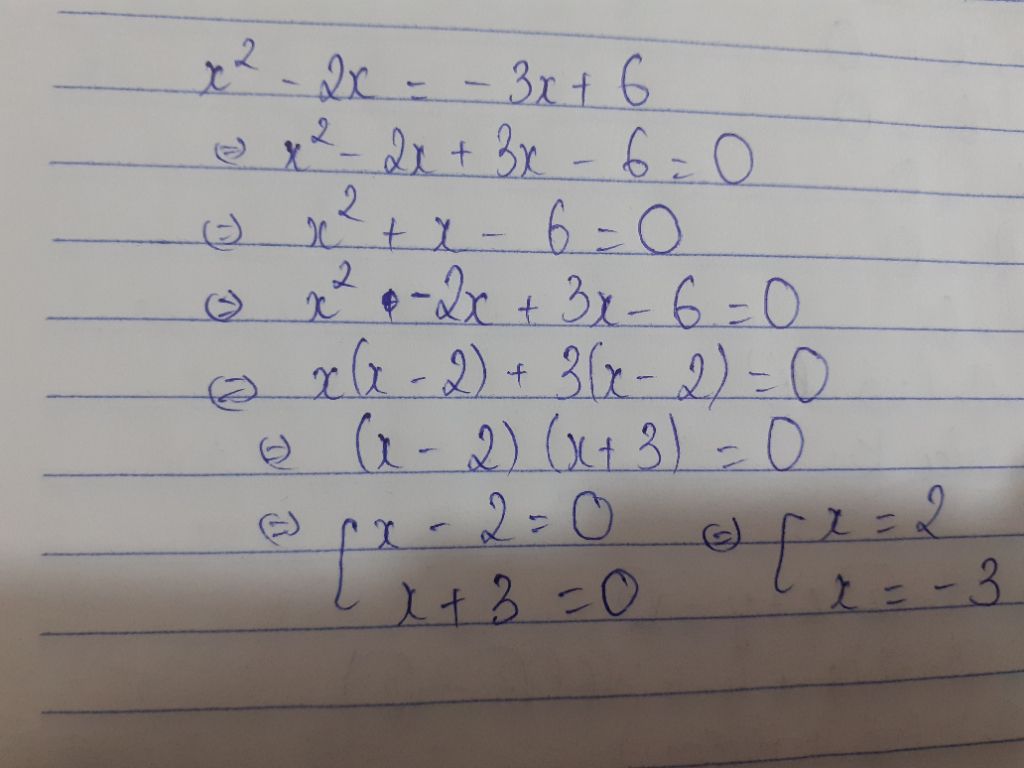 x² - 2x = - 3x + 6
⇔ x² - 2x + 3x - 6 = 0
⇔ x² + x - 6 = 0
⇔ x² - 2x + 3x - 6 = 0
⇔ x(x - 2) + 3(x - 2) = 0
⇔ (x - 2) (x + 3) = 0
⇔ [ x - 2 = 0 ⇔ [ x = 2
x + 3 = 0 x = - 3